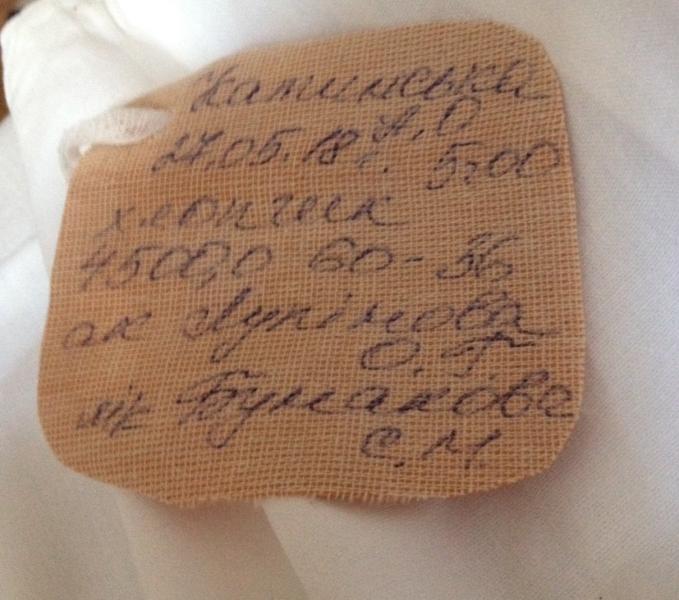 Катинська
А.О
27.05.18 г. 5.00
хлопчик
4500,0 60-36
ак Лупінова
О.Г
лік Бумакова
С.М.